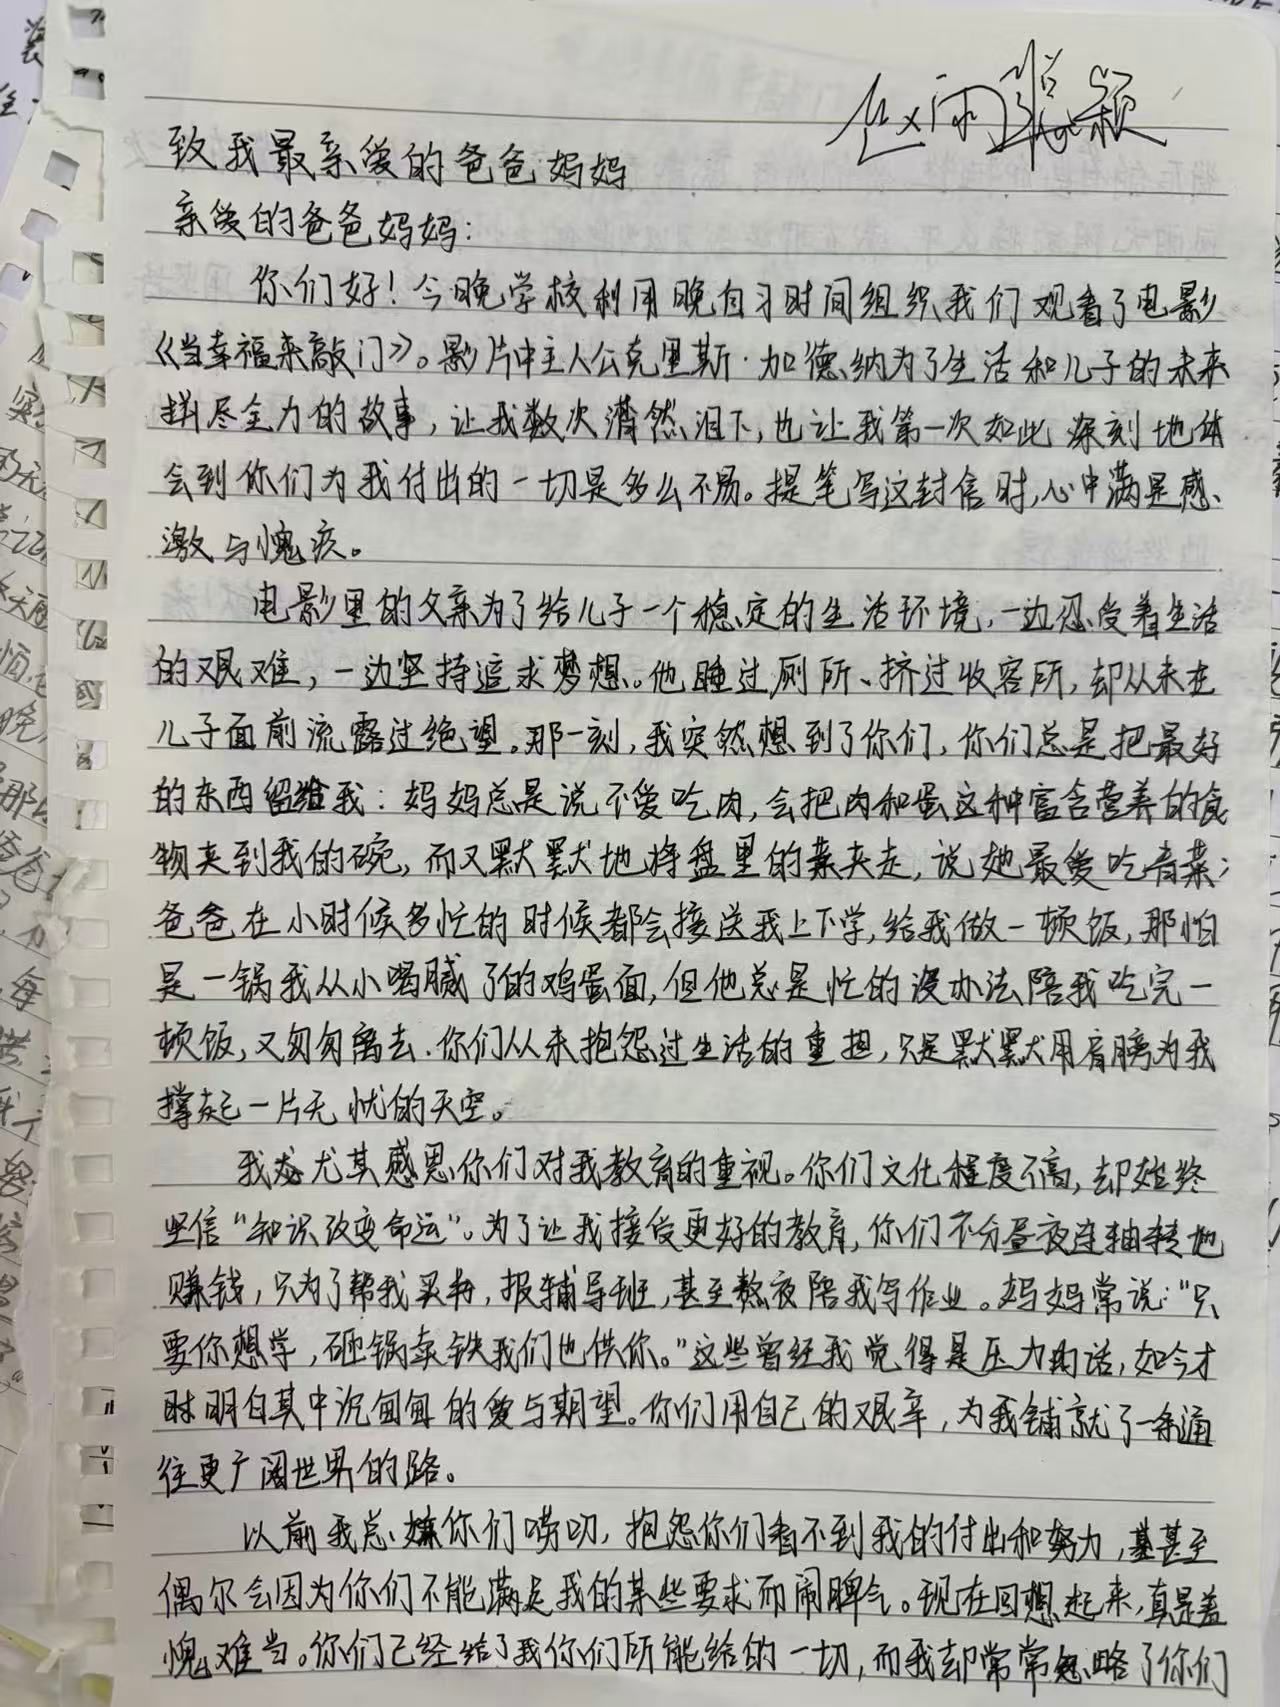 赵雨聪颖
致我最亲爱的爸爸妈妈
亲爱的爸爸妈妈：
你们好！今晚学校利用晚自习时间组织我们观看了电影
《当幸福来敲门》。影片中主人公克里斯·加德纳为了生活和儿子的未来
拼尽全力的故事，让我数次潸然泪下，也让我第一次如此深刻地体
会到你们为我付出的一切是多么不易。提笔写这封信时，心中满是感
激与愧疚。
电影里的父亲为了给儿子一个稳定的生活环境，一边忍受着生活
的艰难，一边坚持追求梦想。他睡过厕所、挤过收容所，却从未在
儿子面前流露过绝望。那一刻，我突然想到了你们，你们总是把最好
的东西留给我：妈妈总是说不爱吃肉，会把肉和蛋这种富含营养的食
物夹到我的碗，而又默默地将盘里的菜夹走，说她最爱吃青菜；
爸爸在小时候多忙的时候都会接送我上下学，给我做一顿饭，那怕
是一锅我从小喝腻了的鸡蛋面，但他总是忙的没办法陪我吃完一
顿饭，又匆匆离去.你们从未抱怨过生活的重担，只是默默用肩膀为我
撑起一片无忧的天空。
我尤其感恩你们对我教育的重视。你们文化程度不高，却始终
坚信“知识改变命运”。为了让我接受更好的教育，你们不分昼夜连轴转地
赚钱，只为了帮我买书，报辅导班，甚至熬夜陪我写作业。妈妈常说：“只
要你想学，砸锅卖铁我们也供你。”这些曾经我觉得是压力的话，如今才
时明白其中沉甸甸的爱与期望。你们用自己的艰辛，为我铺就了一条通
往更广阔世界的路。
以前我总嫌你们唠叨，抱怨你们看不到我的付出和努力，甚至
偶尔会因为你们不能满足我的某些要求而闹脾气。现在回想起来，真是羞
愧难当。你们已经给了我你们所能给的一切，而我却常常忽略了你们